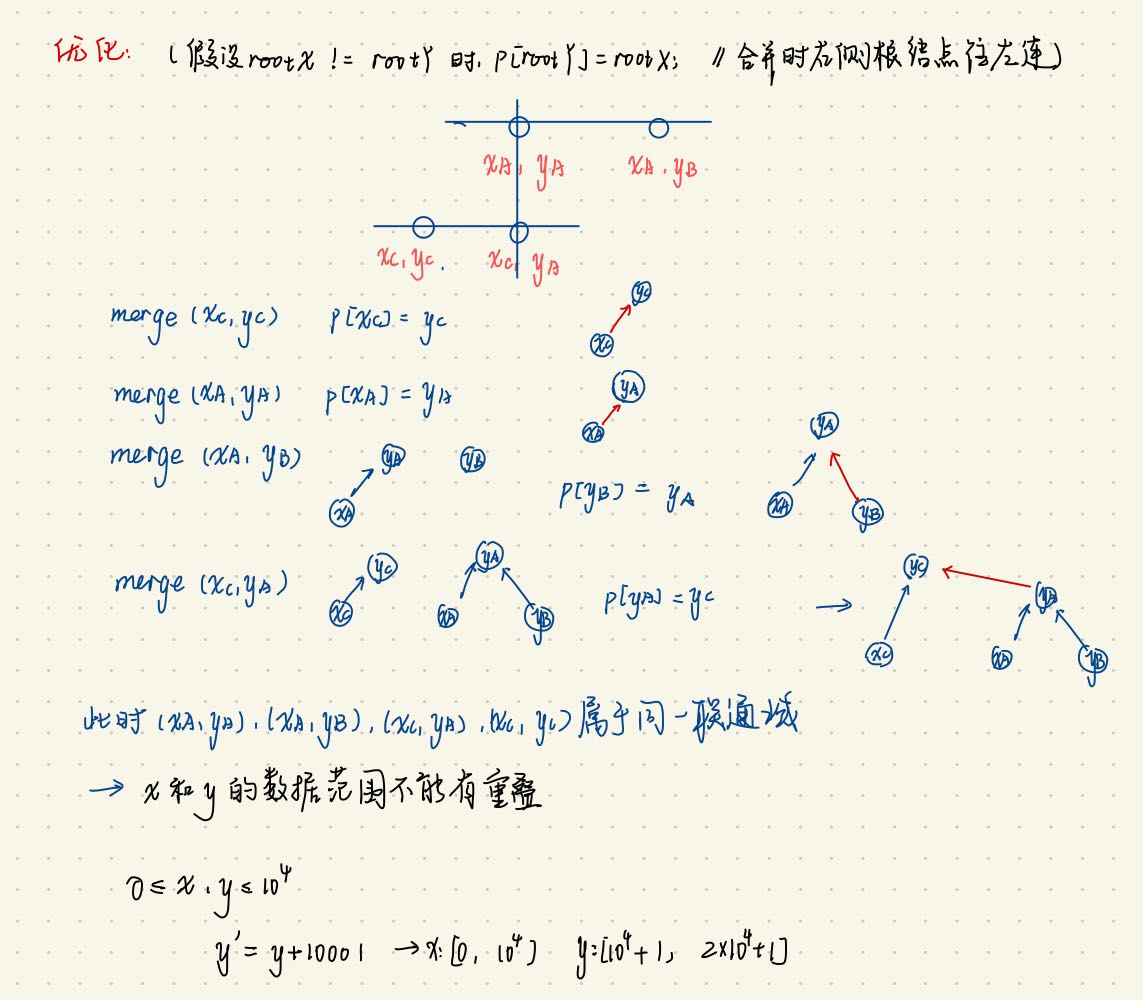 优化: (假设rootX != rootY 时, p[rootY]=rootX; // 合并时右侧根结点往左连)
xA, yA xA, yB
xC, yC. xC, yA
yC
merge (xC, yC) p[xC] = yC
xC
yA
merge (xA, yA) p[xA] = yA
xA
yA
merge (xA, yB) yA yB
p[yB] = yA
xA xA yB
yC yA yC
merge (xC, yA) p[yA] = yC → yA
xC xA yB xC xA yB
此时 (xA, yA), (xA, yB), (xC, yA), (xC, yC) 属于同一联通域
→ x 和 y 的数据范围不能有重叠
0 ≤ x, y ≤ 10⁴
y' = y+10001 → x: [0, 10⁴] y:[10⁴+1, 2×10⁴+1]